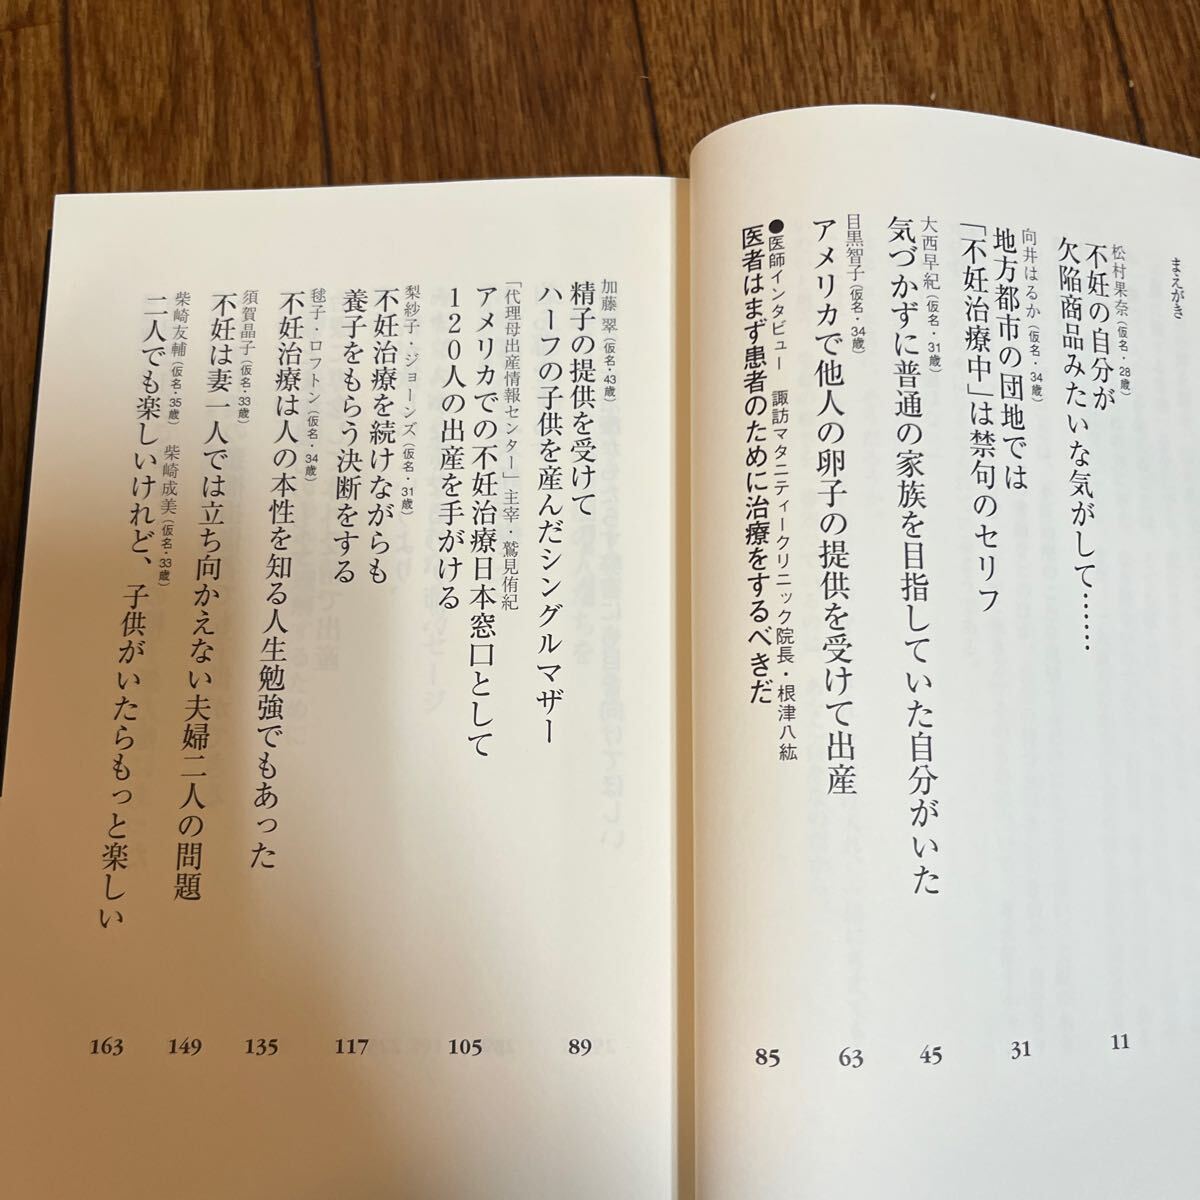 まえがき
松村果奈(仮名・28歳)
不妊の自分が
欠陥商品みたいな気がして……
11
向井はるか(仮名・34歳)
地方都市の団地では
「不妊治療中」は禁句のセリフ
31
大西早紀(仮名・31歳)
気づかずに普通の家族を目指していた自分がいた
45
目黒智子(仮名・34歳)
アメリカで他人の卵子の提供を受けて出産
63
●医師インタビュー 諏訪マタニティークリニック院長・根津八紘
医者はまず患者のために治療をするべきだ
85
加藤 翠(仮名・43歳)
精子の提供を受けて
ハーフの子供を産んだシングルマザー
89
「代理母出産情報センター」主宰・鷲見侑紀
アメリカでの不妊治療日本窓口として
120人の出産を手がける
105
梨紗子・ジョーンズ(仮名・31歳)
不妊治療を続けながらも
養子をもらう決断をする
117
毬子・ロフトン(仮名・34歳)
不妊治療は人の本性を知る人生勉強でもあった
135
須賀晶子(仮名・33歳)
不妊は妻一人では立ち向かえない夫婦二人の問題
149
柴崎友輔(仮名・35歳) 柴崎成美(仮名・33歳)
二人でも楽しいけれど、子供がいたらもっと楽しい
163